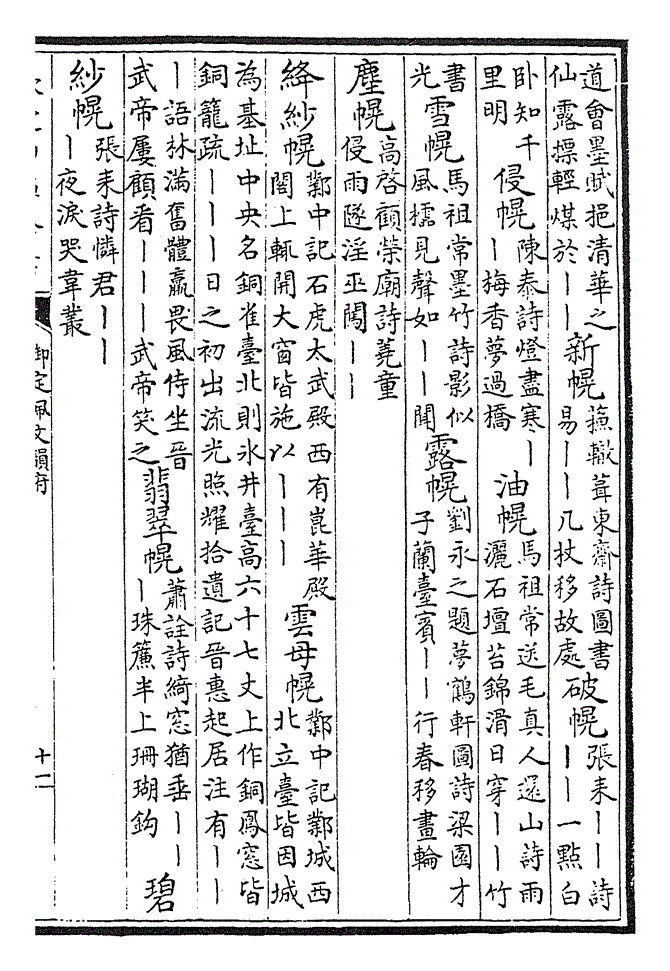 道會墨賦挹清華之
仙露摽輕煤於｜｜
新幌
蘇轍葺東齋詩圖書
易｜｜几杖移故處
破幌
張耒｜｜詩
｜｜一點白
卧知千
里明
侵幌
陳泰詩燈盡寒｜
｜梅香夢過橋
油幌
馬祖常送毛真人還山詩雨
灑石壇苔錦滑日穿｜｜竹
書
光
雪幌
馬祖常墨竹詩影似
風檽見聲如｜｜聞
露幌
劉永之題夢鶴軒圖詩梁園才
子蘭臺賓｜｜行春移畫輪
塵幌
高啓顧榮廟詩蕘童
侵雨隧淫巫闖｜｜
絳紗幌
鄴中記石虎太武殿西有崑華殿
閣上輒開大窗皆施以｜｜｜
雲母幌
鄴中記鄴城西
北立臺皆因城
為基址中央名銅雀臺北則氷井臺高六十七丈上作銅鳳窓皆
銅籠疏｜｜｜日之初出流光照耀拾遺記晉惠起居注有｜｜
｜語林滿奮體羸畏風侍坐晉
武帝屢顧看｜｜｜武帝笑之
翡翠幌
蕭詮詩綺窓猶垂｜｜
｜珠簾半上珊瑚鈎
碧
紗幌
張耒詩憐君｜｜
｜夜淚哭韋叢
御定佩文韻府
十二